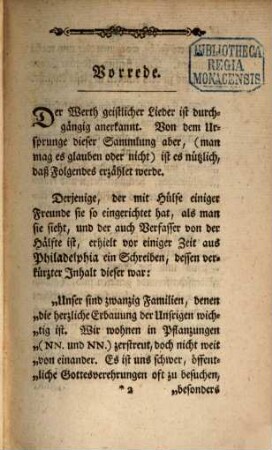 BIBLIOTHECA
REGIA
MONACENSIS
Vorrede.
Der Werth geistlicher Lieder ist durch-
gängig anerkannt. Von dem Ur-
sprunge dieser Sammlung aber, (man
mag es glauben oder nicht) ist es nützlich,
daß Folgendes erzählet werde.
Derjenige, der mit Hülfe einiger
Freunde sie so eingerichtet hat, als man
sie sieht, und der auch Verfasser von der
Hälfte ist, erhielt vor einiger Zeit aus
Philadelphia ein Schreiben, dessen ver-
kürzter Inhalt dieser war:
„Unser sind zwanzig Familien, denen
„die herzliche Erbauung der Unsrigen wich-
„tig ist. Wir wohnen in Pflanzungen
„(NN. und NN.) zerstreut, doch nicht weit
„von einander. Es ist uns schwer, öffent-
„liche Gottesverehrungen oft zu besuchen,
*2 „besonders